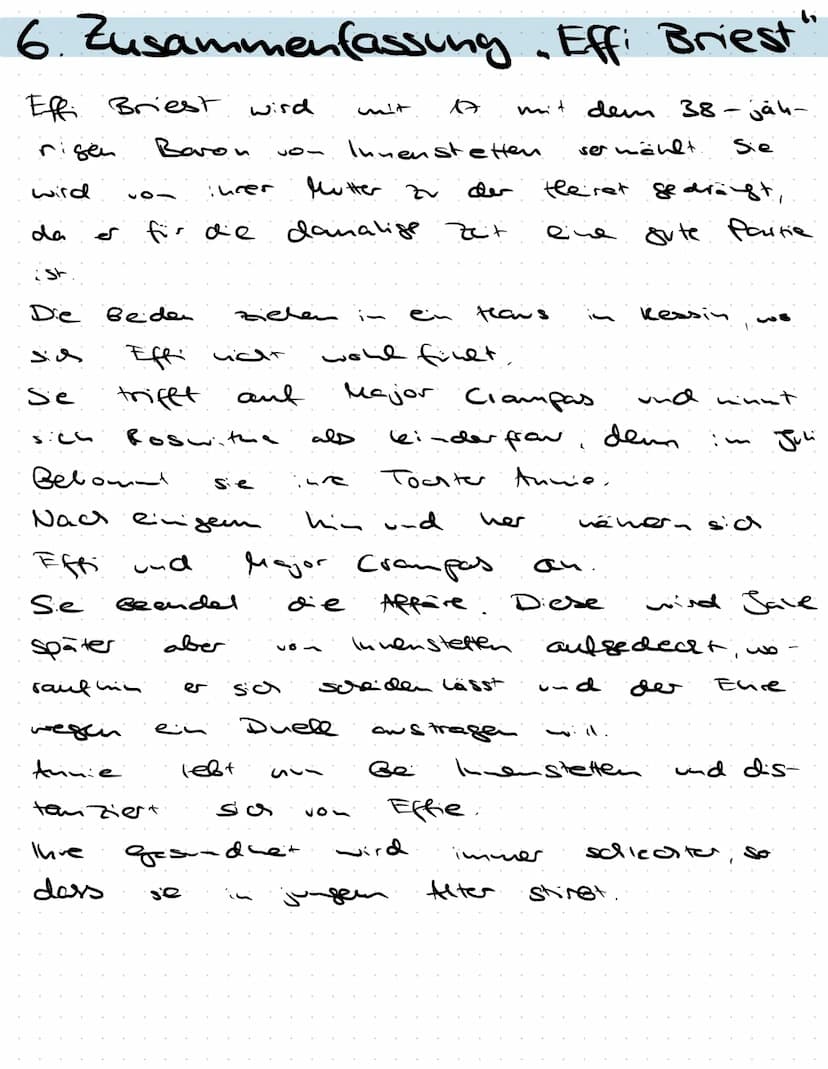 6. Zusammenfassung „Effi Briest"
Effi Briest wird mit 17 mit dem 38-jäh-
rigen Baron von Innenstetten vermählt. Sie
wird von ihrer Mutter zu der Heirat gedrängt,
da er für die damalige Zeit eine gute Partie
ist.
Die Beiden ziehen in ein Haus in Kessin, wo
sich Effi nicht wohl finet.
Sie trifft auf Major Crampas und nimmt
sich Roswitha als Kinderfrau, denn im Juli
Bekommt sie ihre Tochter Annie.
Nach einigem hin und her nähern sich
Effi und Major Crampas an.
Sie beendet die Affäre. Diese wird Jahre
später aber von Innenstetten aufgedeckt, wo-
raufhin er sich scheiden lässt und der Ehre
wegen ein Duell austragen will.
Annie lebt nun Bei Innenstetten und dis-
tanziert sich von Effie.
Ihre gesundheit wird immer schlechter, so
dass sie in jungem Alter stirbt.